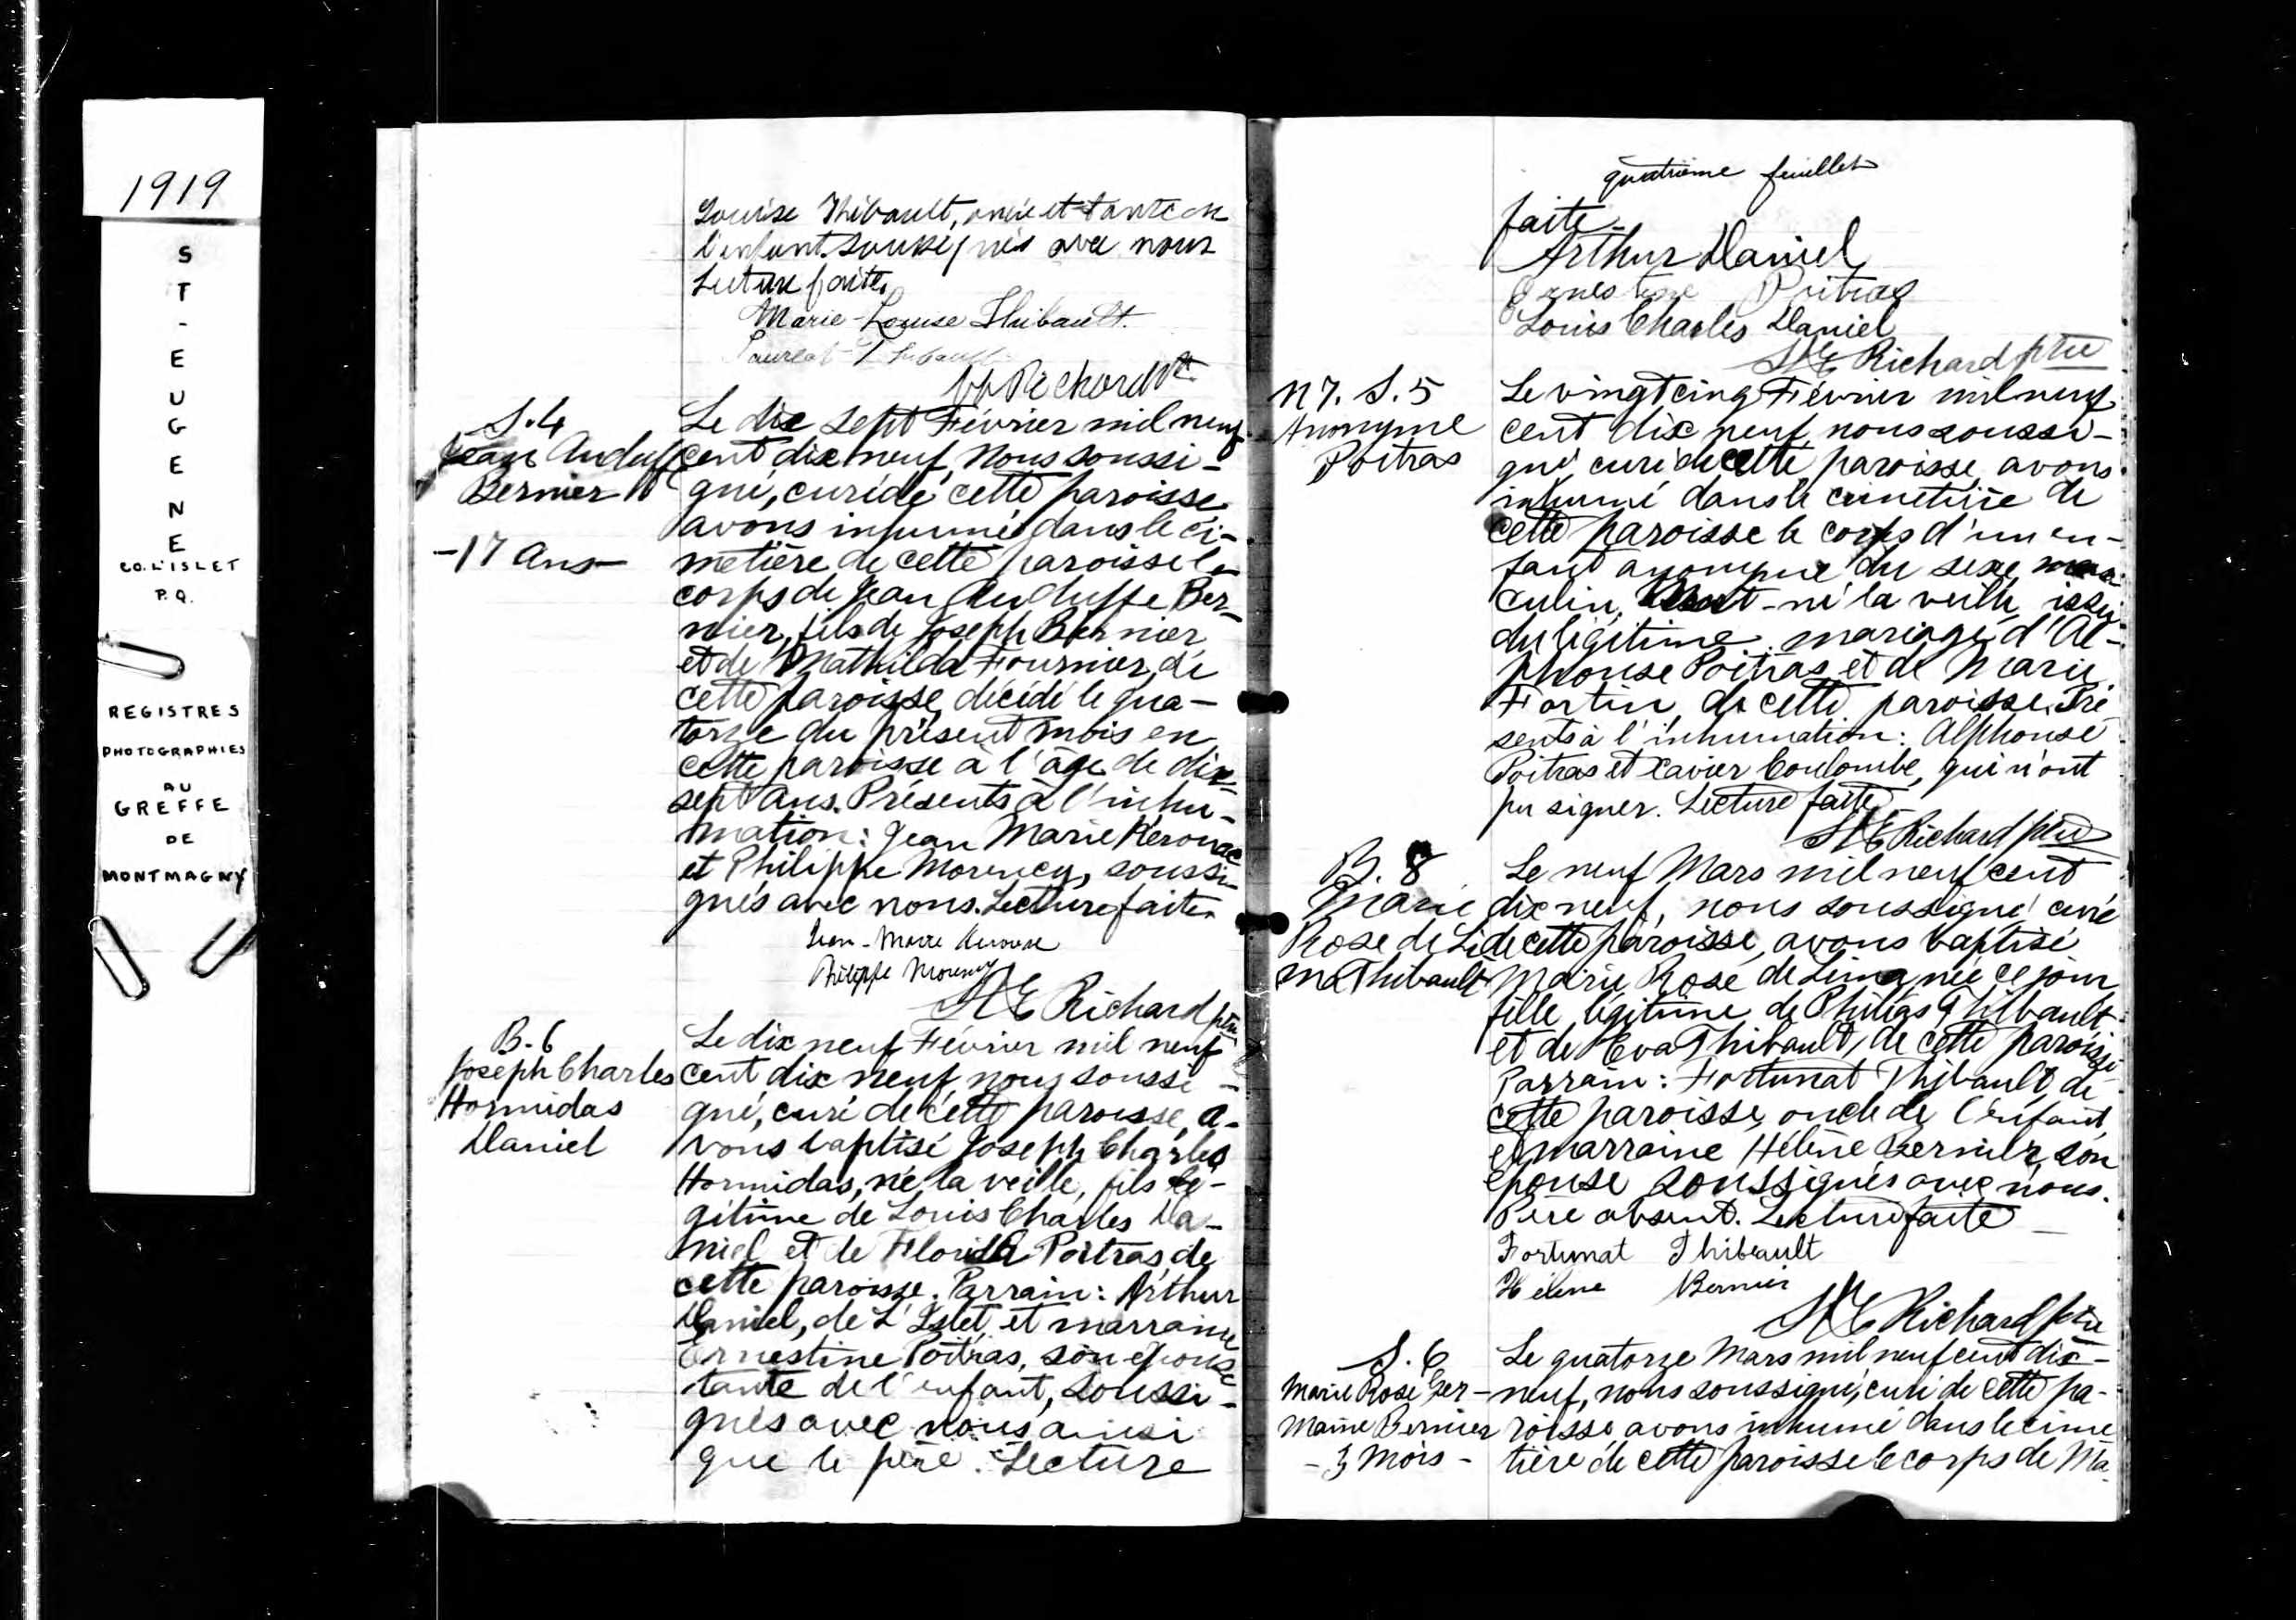 1919
ST-EUGENE
CO. L'ISLET
P.Q.
REGISTRES
PHOTOGRAPHIES
AU
GREFFE
DE
MONTMAGNY
Louise Thibault, oncle et tante de
l'enfant soussignés avec nous
Lecture faite.
Marie-Louise Thibault.
Thibault
Richard ptre
S. 4
Jean
Bernier
-17 ans-
Le dix sept Février mil neuf
cent dix neuf, nous soussi-
gné, curé de cette paroisse
avons inhumé dans le ci-
metière de cette paroisse le
corps de Jean Ber-
nier, fils de Joseph Bernier
et de Mathilda Fournier, de
cette paroisse, décédé le qua-
torze du présent mois en
cette paroisse à l'âge de dix-
sept ans. Présents à l'inhu-
mation: Jean Marie Kerouac
et Philippe Morency, soussi-
gnés avec nous. Lecture faite.
Jean-Marie
Philippe Morency
Richard ptre
B. 6
Joseph Charles
Hormidas
Daniel
Le dix neuf Février mil neuf
cent dix neuf, nous soussi-
gné, curé de cette paroisse, a-
vons baptisé Joseph Charles
Hormidas, né la veille, fils lé-
gitime de Louis Charles Da-
niel et de Florida Poitras, de
cette paroisse. Parrain: Arthur
Daniel, de L'Islet, et marraine
Ernestine Poitras, son épouse
tante de l'enfant, soussi-
gnés avec nous ainsi
que le père. Lecture
quatrième feuillet
faite.
Arthur Daniel
Ernestine Poitras
Louis Charles Daniel
Richard ptre
N7. S. 5
Anonyme
Poitras
Le vingt cinq Février mil neuf
cent dix neuf, nous soussi-
gné, curé de cette paroisse, avons
inhumé dans le cimetière de
cette paroisse le corps d'un en-
fant anonyme du sexe mas-
culin, mort-né la veille, issu
du légitime mariage d'Al-
phonse Poitras et de Marie
Fortin, de cette paroisse. Pré
sents à l'inhumation: Alphonse
Poitras et Xavier Coulombe, qui n'ont
pu signer. Lecture faite
Richard ptre
B. 8
Marie
Rose de Li
ma Thibault
Le neuf Mars mil neuf cent
dix neuf, nous soussigné curé
de cette paroisse, avons baptisé
Marie Rose de Lima, née ce jour
fille légitime de Philéas Thibault
et de Eva Thibault, de cette paroisse
Parrain: Fortunat Thibault, de
cette paroisse, oncle de l'enfant,
et marraine Hélène Bernier, son
épouse soussignés avec nous.
Père absent. Lecture faite
Fortunat Thibault
Hélène Bernier
Richard ptre
S. 6
Marie Rose Ger-
maine Bernier
- 3 mois -
Le quatorze Mars mil neuf cent dix-
neuf, nous soussigné, curé de cette pa-
roisse, avons inhumé dans le cime
tière de cette paroisse le corps de Ma-